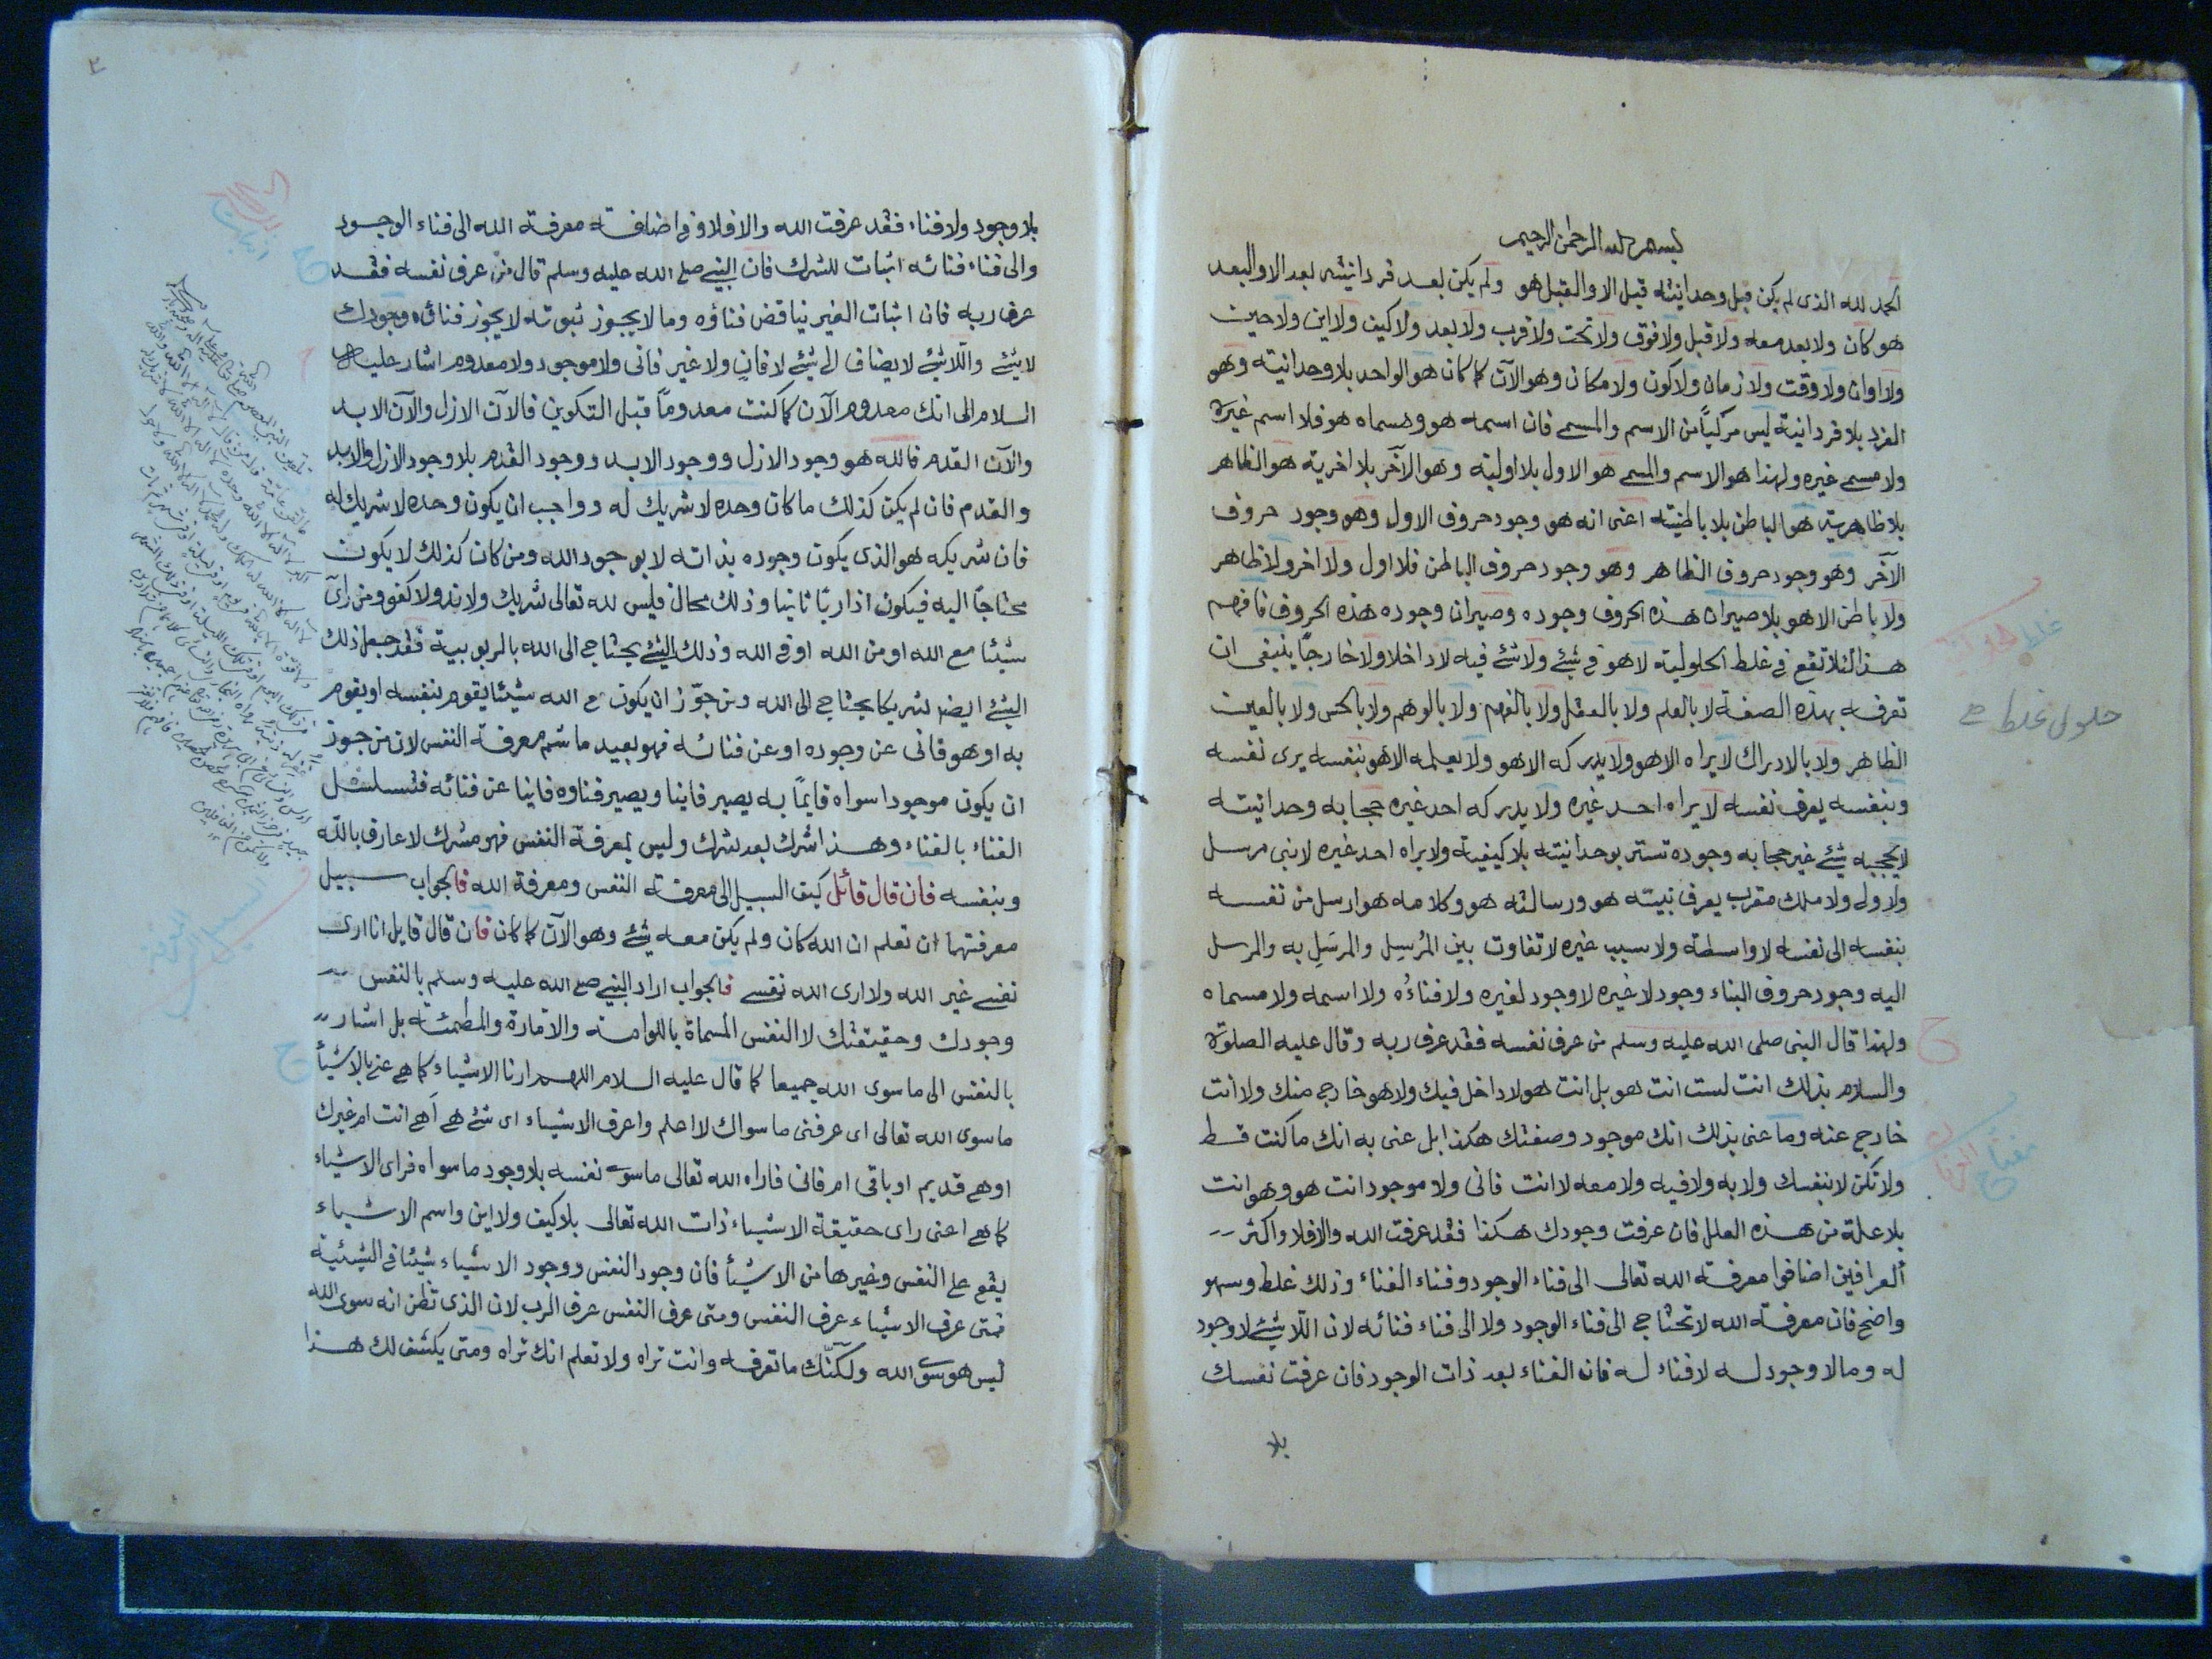 بسم الله الرحمن الرحيم
الحمد لله الذى لم يكن قبل وحدانيته قبل الا والقبل هو ولم يكن بعد فردانيته بعد الا والبعد
هو كان ولا بعد معه ولا قبل ولا فوق ولا تحت ولا قرب ولا بعد ولا كيف ولا اين ولا حين
ولا اوان ولا وقت ولا زمان ولا كون ولا مكان وهو الآن كما كان هو الواحد بلا وحدانية وهو
الفرد بلا فردانية ليس مركباً من الاسم والمسمى فان اسمه هو ومسماه هو فلا اسم غيره
ولا مسمى غيره ولهذا هو الاسم والمسمى هو الاول بلا اولية وهو الآخر بلا اخرية هو الظاهر
بلا ظاهرية هو الباطن بلا باطنية اعنى انه هو وجود حروف الاول وهو وجود حروف
الآخر وهو وجود حروف الظاهر وهو وجود حروف الباطن فلا اول ولا اخر ولا ظاهر
ولا باطن الا هو بلا صيران هذه الحروف وجوده وصيران وجوده هذه الحروف فافهم
هذا لئلا تقع فى غلط الحلولية لا هو فى شئ ولا شئ فيه لا داخلا ولا خارجاً ينبغى ان
تعرفه بهذه الصفة لا بالعلم ولا بالعقل ولا بالفهم ولا بالوهم ولا بالحس ولا بالعين
الظاهر ولا بالادراك لا يراه الا هو ولا يدركه الا هو ولا يعلمه الا هو بنفسه يرى نفسه
وبنفسه يعرف نفسه لا يراه احد غيره ولا يدركه احد غيره حجابه وحدانيته
لا يحجبه شئ غير حجابه وجوده تستر بوحدانيته بلا كيفية ولا يراه احد غيره لا نبى مرسل
ولا ولى ولا ملك مقرب يعرف نبيه هو ورسالته هو وكلامه هو ارسل من نفسه
بنفسه الى نفسه لا واسطة ولا سبب غيره لا تفاوت بين المُرسِل والمرسَل به والمرسل
اليه وجود حروف البناء وجود لا غيره لا وجود لغيره ولا فناءُه ولا اسمه ولا مسماه
ولهذا قال النبى صلى الله عليه وسلم من عرف نفسه فقد عرف ربه وقال عليه الصلوة
والسلام بذلك انت لست انت هو بل انت هو لا داخل فيك ولا هو خارج منك ولا انت
خارج عنه وما عنى بذلك انك موجود وصفتك هكذا بل عنى به انك ما كنت قط
ولا تكن لا بنفسك ولا به ولا فيه ولا معه لا انت فانى ولا موجود انت هو وهو انت
بلا علة من هذه العلل فان عرفت وجودك هكذا فقد عرفت الله والا فلا واكثر
العرافين اضافوا معرفة الله تعالى الى فناء الوجود وفناء الفناء وذلك غلط وسهو
واضح فان معرفة الله لا تحتاج الى فناء الوجود ولا الى فناء فنائه لان اللاشئ لا وجود
له وما لا وجود له لا فناء له فان الفناء بعد ذات الوجود فان عرفت نفسك
بلا
حلولى غلط
بلا وجود ولا فناء فقد عرفت الله والا فلا وفى اضافة معرفة الله الى فناء الوجود
والى فناء فنائه اثبات للشرك فان النبى صلى الله عليه وسلم قال من عرف نفسه فقد
عرف ربه فان اثبات الغير يناقض فناؤه وما لا يجوز ثبوته لا يجوز فناؤه وجودك
لا شئ واللاشئ لا يضاف الى شئ لا فانٍ ولا غير فانى ولا موجود ولا معدوم اشار عليه
السلام الى انك معدوم الآن كما كنت معدوماً قبل التكوين فالآن الازل والآن الابد
والآن القدم فالله هو وجود الازل ووجود الابد ووجود القدم بلا وجود الازل والابد
والقدم فان لم يكن كذلك ما كان وحده لا شريك له وواجب ان يكون وحده لا شريك له
فان شريكه هو الذى يكون وجوده بذاته لا بوجود الله ومن كان كذلك لا يكون
محتاجاً اليه فيكون اذا ربّا ثانيا وذلك محال فليس لله تعالى شريك ولا ند ولا كفو ومن رآى
شيئا مع الله او من الله او فى الله وذلك الشئ يحتاج الى الله بالربوبية فقد جعل ذلك
الشئ ايضا شريكا يحتاج الى الله ومن جوّز ان يكون مع الله شيئا يقوم بنفسه او يقوم
به او هو فانى عن وجوده او عن فنائه فهو بعيد ما شم معرفة النفس لان من جوز
ان يكون موجودا سواه قايماً به يصير فانيا ويصير فناوه فانيا عن فنائه فتسلسل
الفناء بالفناء وهذا شرك بعد شرك وليس بمعرفة النفس فهو مشرك لا عارف بالله
وبنفسه فان قال قائل كيف السبيل الى معرفة النفس ومعرفة الله فالجواب سبيل
معرفتهما ان تعلم ان الله كان ولم يكن معه شئ وهو الآن كما كان فان قال قايل انا ارى
نفسى غير الله ولا ارى الله نفسى فالجواب اراد النبى صلى الله عليه وسلم بالنفس
وجودك وحقيقتك لا النفس المسماة باللوامة والامارة والمطمئنة بل اشار
بالنفس الى ما سوى الله جميعا كما قال عليه السلام اللهم ارنا الاشياء كما هى عنى بالاشيأ
ما سوى الله تعالى اى عرفنى ما سواك لا اعلم واعرف الاشياء اى شئ هى أهى انت ام غيرك
او هى قديم او باقى ام فانى فاراه الله تعالى ما سوى نفسه بلا وجود ما سواه فراى الاشياء
كما هى اعنى راى حقيقة الاشياء ذات الله تعالى بلا كيف ولا اين واسم الاشياء
يقع على النفس وغيرها من الاشيأ فان وجود النفس ووجود الاشياء شيئا فى الشيئية
فمتى عرف الاشياء عرف النفس ومتى عرف النفس عرف الرب لان الذى تظن انه سوى الله
ليس هو سوى الله ولكنّك ما تعرفه وانت تراه ولا تعلم انك تراه ومتى يكشف لك هذا